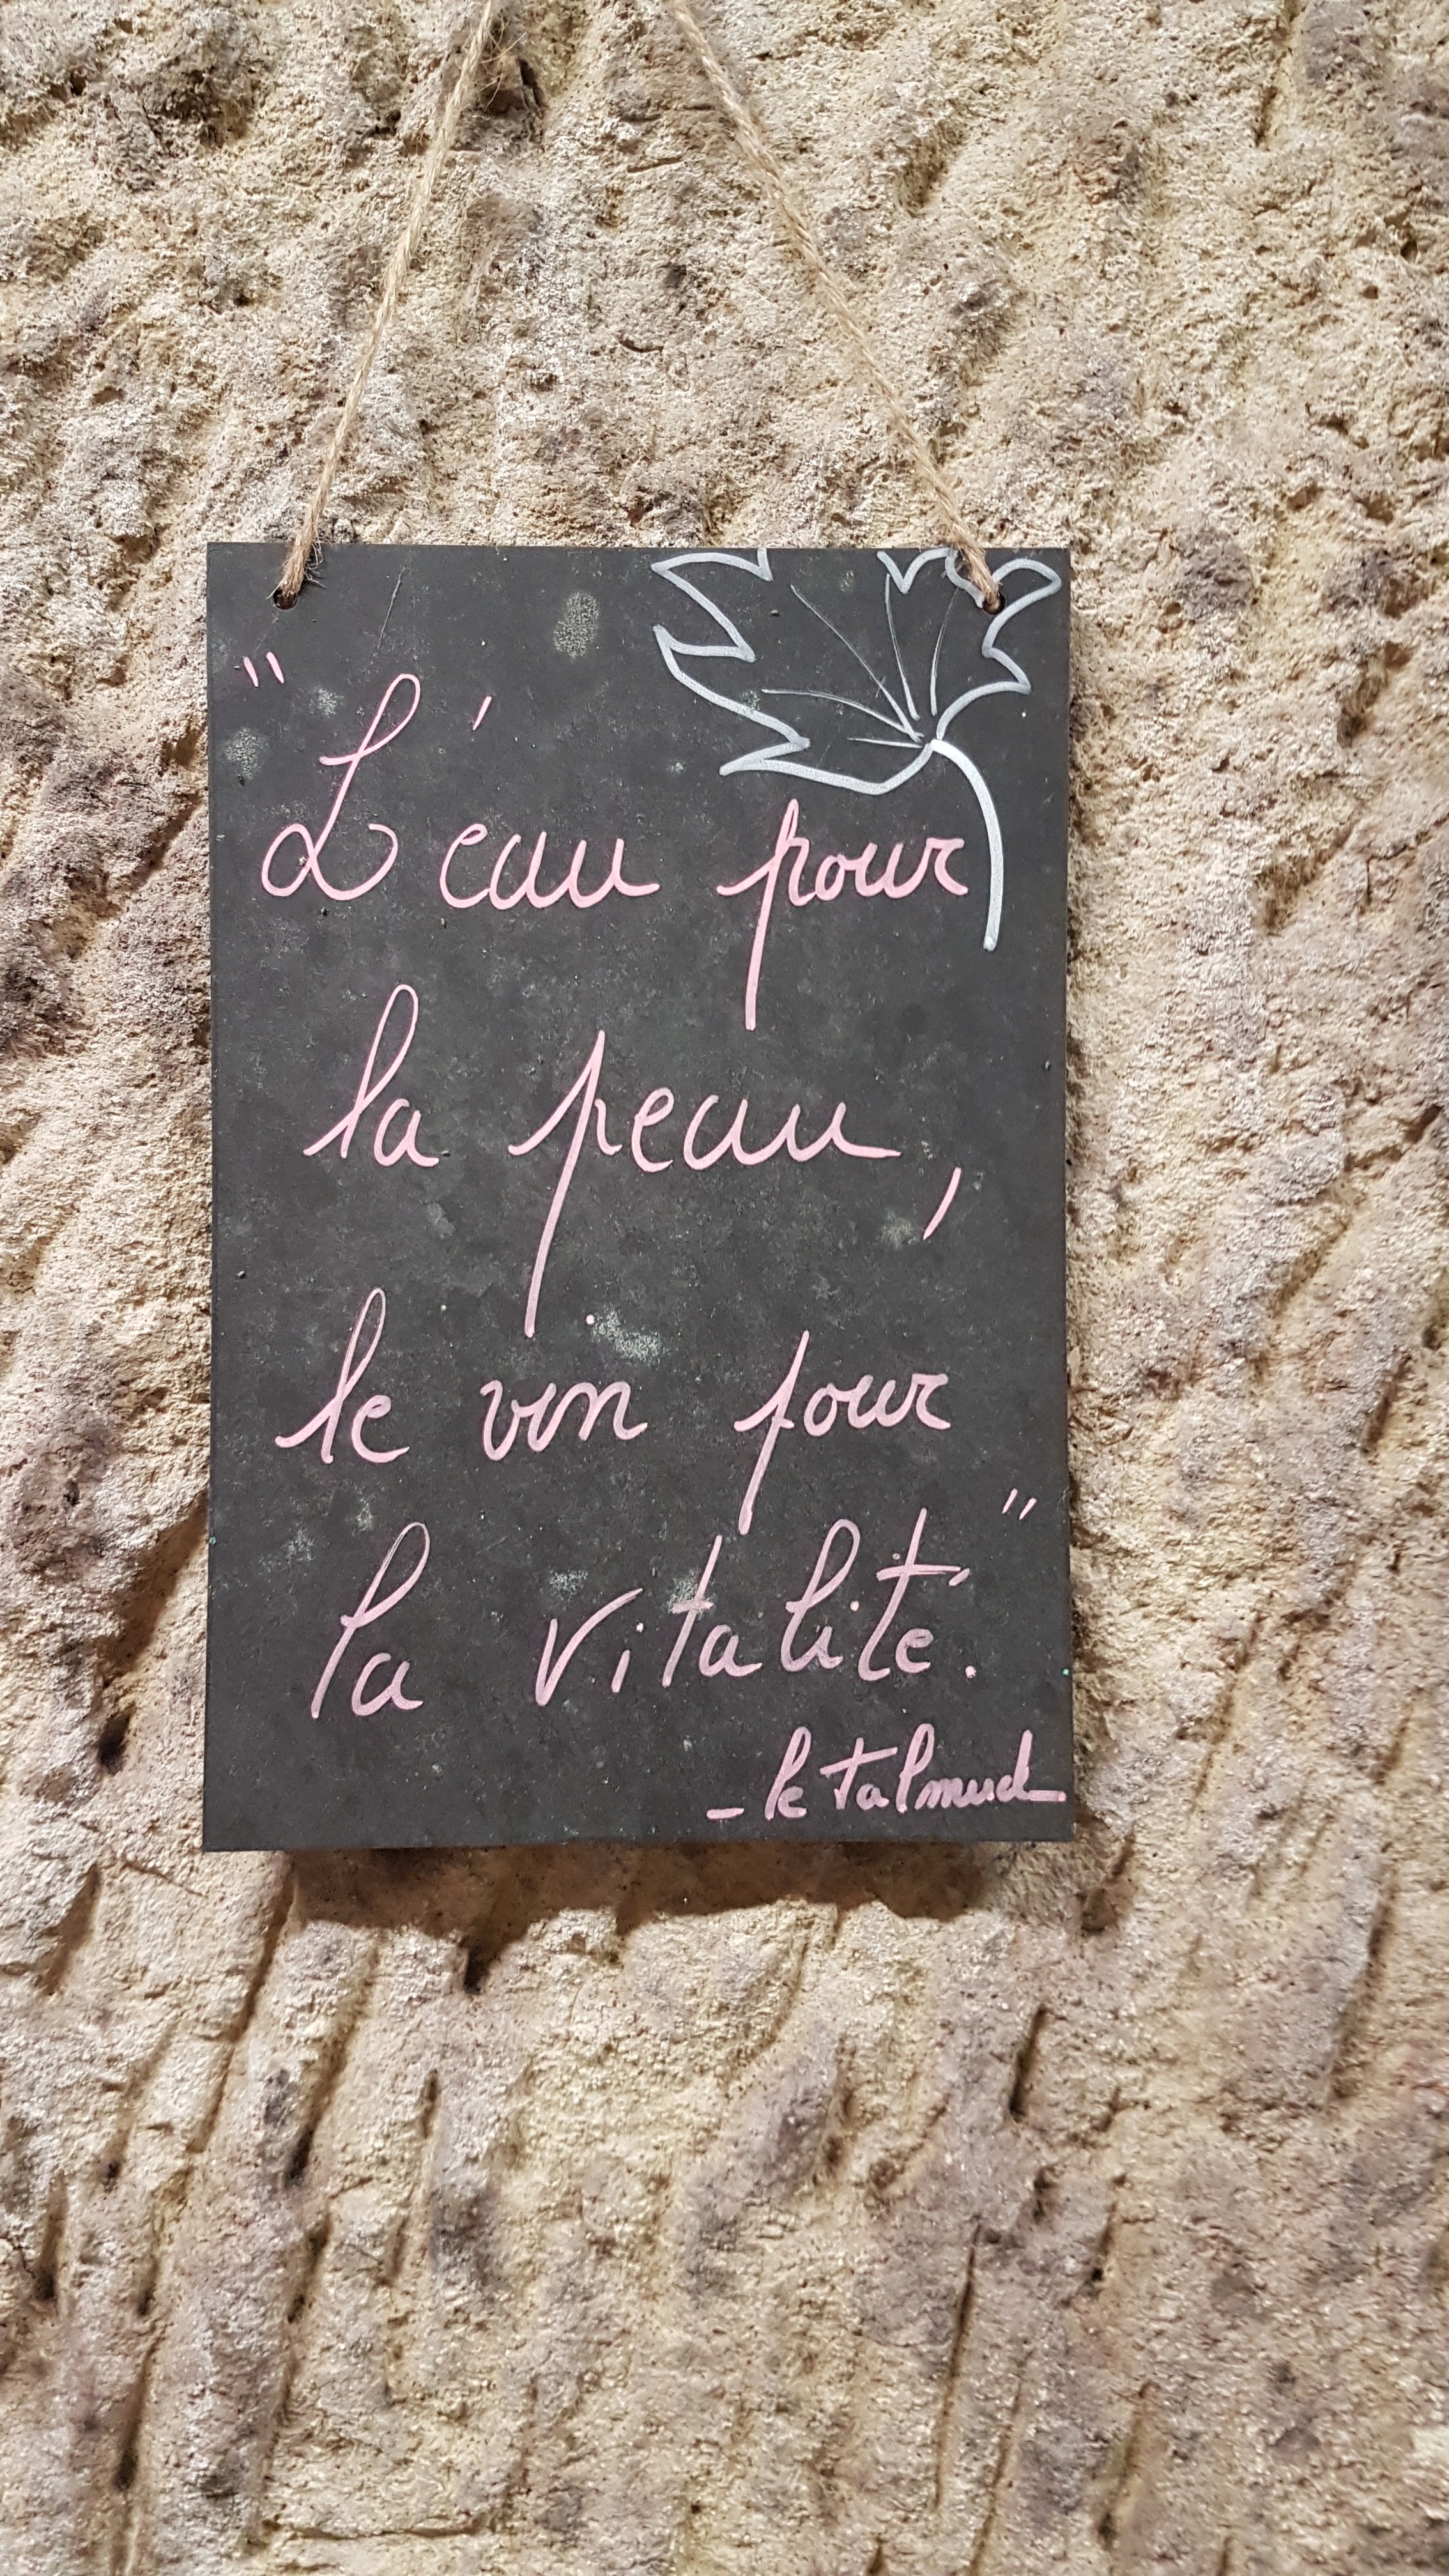 "L'eau pour
la peau,
le vin pour
la vitalité."
- le talmud